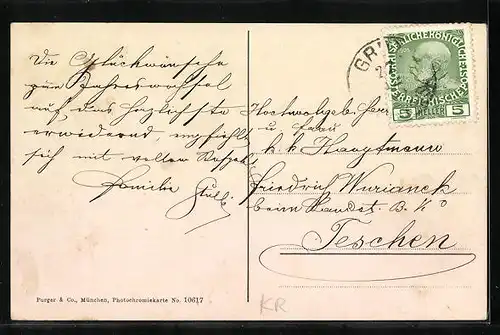 Die Glückwünsche
zum Jahreswechsel
auf das herzlichste
erwidernd, empfiehlt
sich mit vollem
Familie
GRI
KAISERLICHEKÖNIGLICHE
ÖSTERREICHISCHE
5 HELLER 5
Hochwolgeb. Herrn
u. Frau
k. k. Hauptmann
Friedrich Wurianek
beim Landst. B. K°
Teschen
Purger & Co., München, Photochromiekarte No. 10617
KR